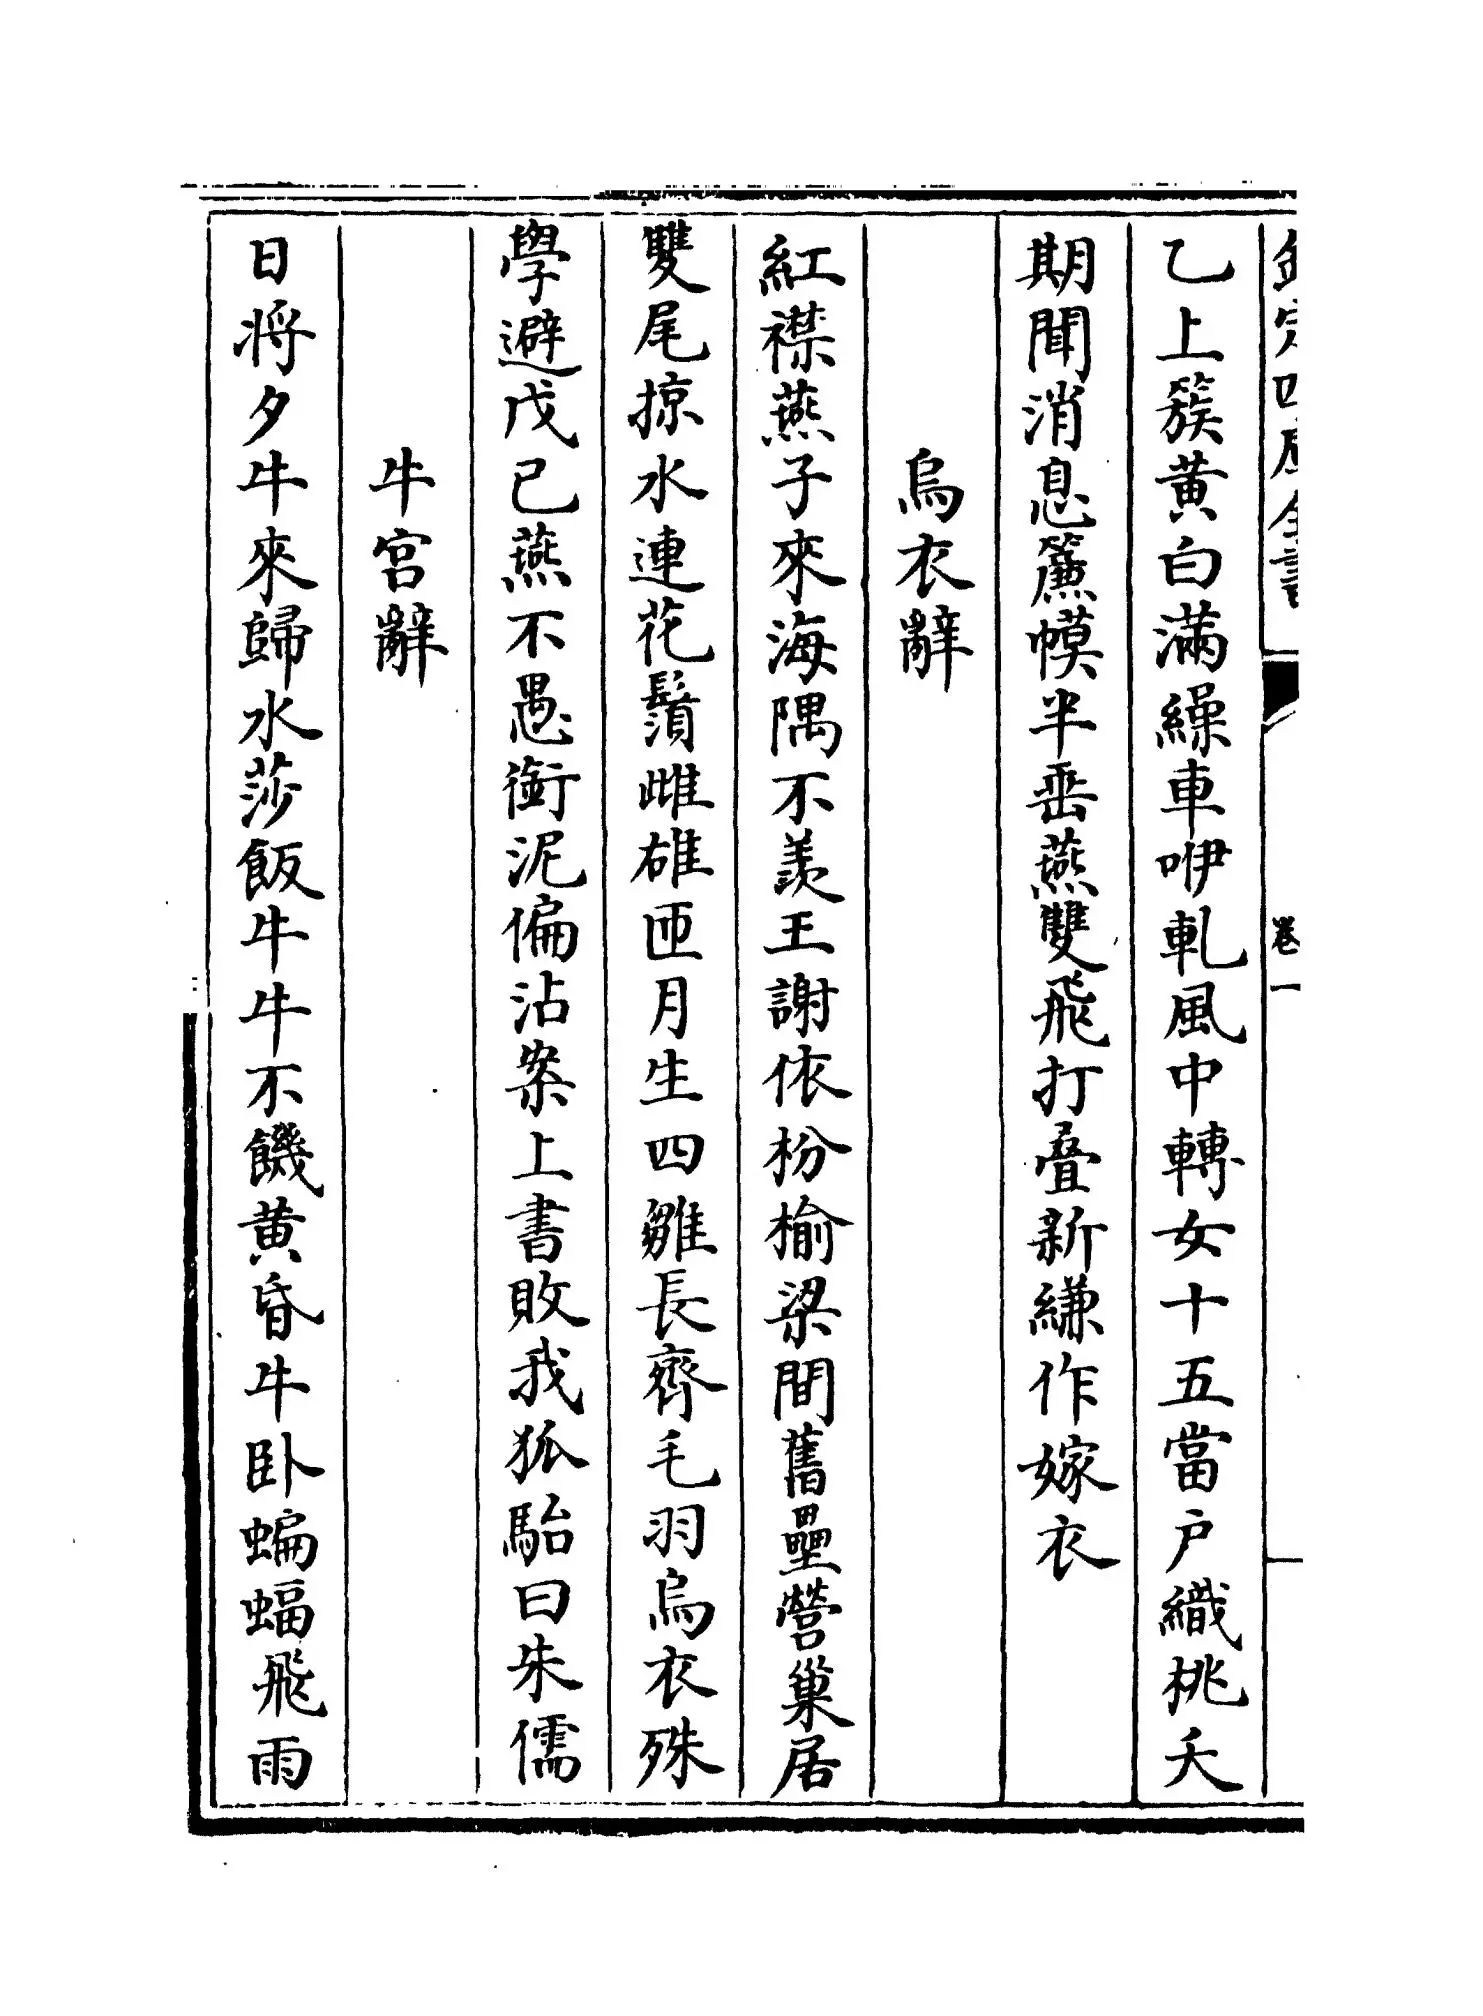 欽定四庫全書
卷一
乙上簇黄白滿繰車咿軋風中轉女十五當户織桃夭
期聞消息簾幙半垂燕雙飛打疊新縑作嫁衣
烏衣辭
紅襟燕子來海隅不羨王謝依枌榆梁間舊壘營巢居
雙尾掠水連花鬚雌雄匝月生四雛長齊毛羽烏衣殊
學避戊已燕不愚銜泥偏沾案上書敗我狐駘曰朱儒
牛宫辭
日将夕牛來歸水莎飯牛牛不饑黄昏牛卧蝙蝠飛雨